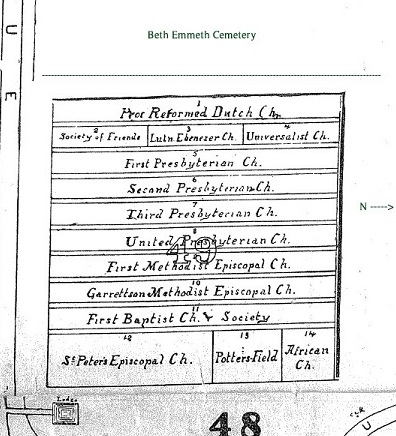 Beth Emmeth Cemetery
U
E
1
Pros Reformed Dutch Ch.
2
Society of Friends
3
Luth Ebenezer Ch.
4
Universalist Ch.
5
First Presbyterian Ch.
6
Second Presbyterian Ch.
7
Third Presbyterian Ch.
N ----->
8
United Presbyterian Ch.
49
First Methodist Episcopal Ch.
10
Garrettson Methodist Episcopal Ch.
11
First Baptist Ch. & Society
12
St. Peters Episcopal Ch.
13
Potters Field
14
African
Ch.
Lodge
48
U